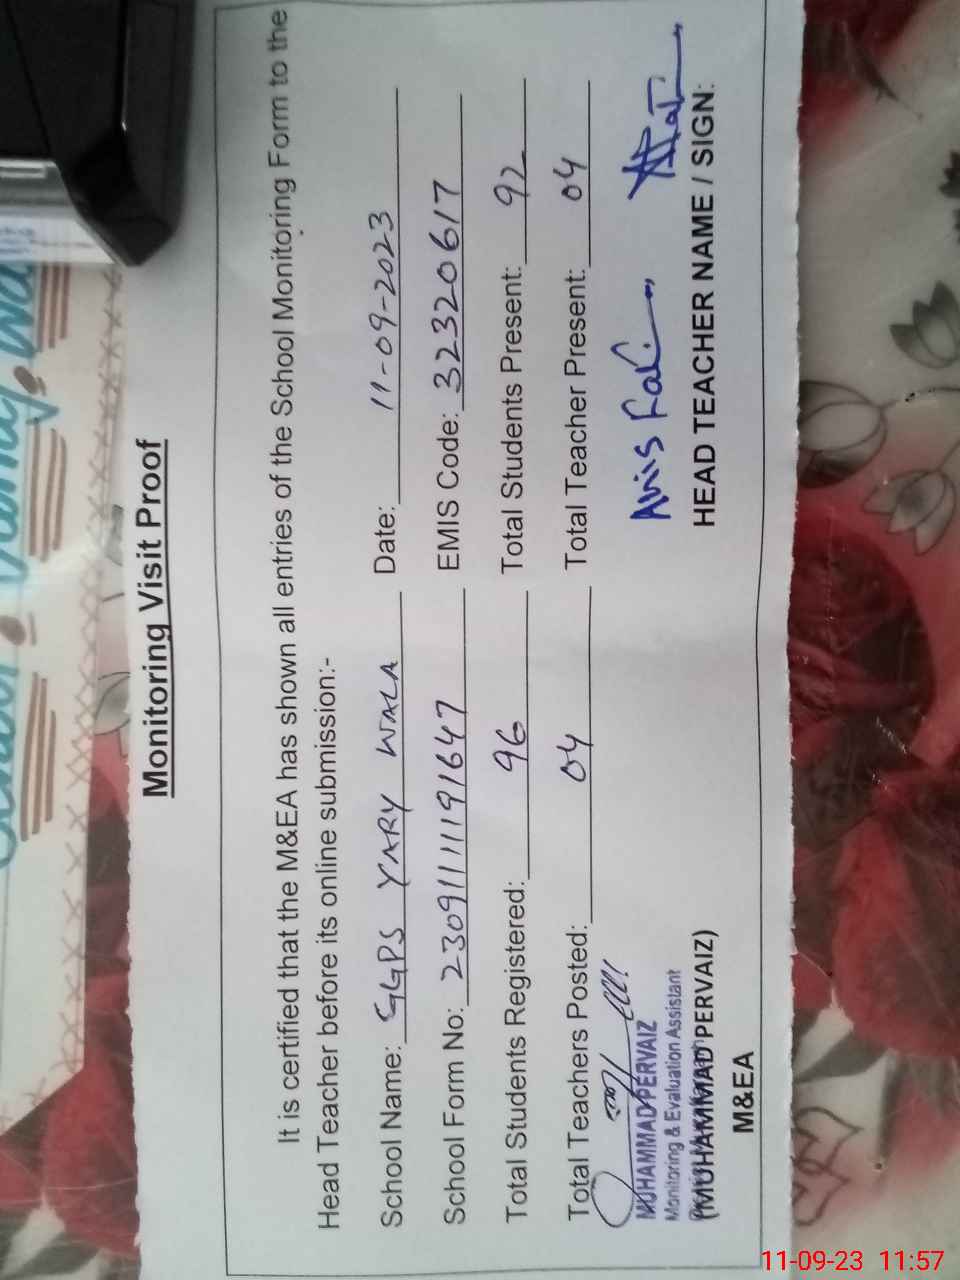 Monitoring Visit Proof
It is certified that the M&EA has shown all entries of the School Monitoring Form to the
Head Teacher before its online submission:-
School Name: GGPS YARY WALA Date: 11-09-2023
School Form No: 230911111191647 EMIS Code: 32320617
Total Students Registered: 96 Total Students Present: 92
Total Teachers Posted: 04 Total Teacher Present: 04
MUHAMMAD PERVAIZ
Monitoring & Evaluation Assistant
(MUHAMMAD PERVAIZ)
M&EA
HEAD TEACHER NAME / SIGN:
11-09-23 11:57